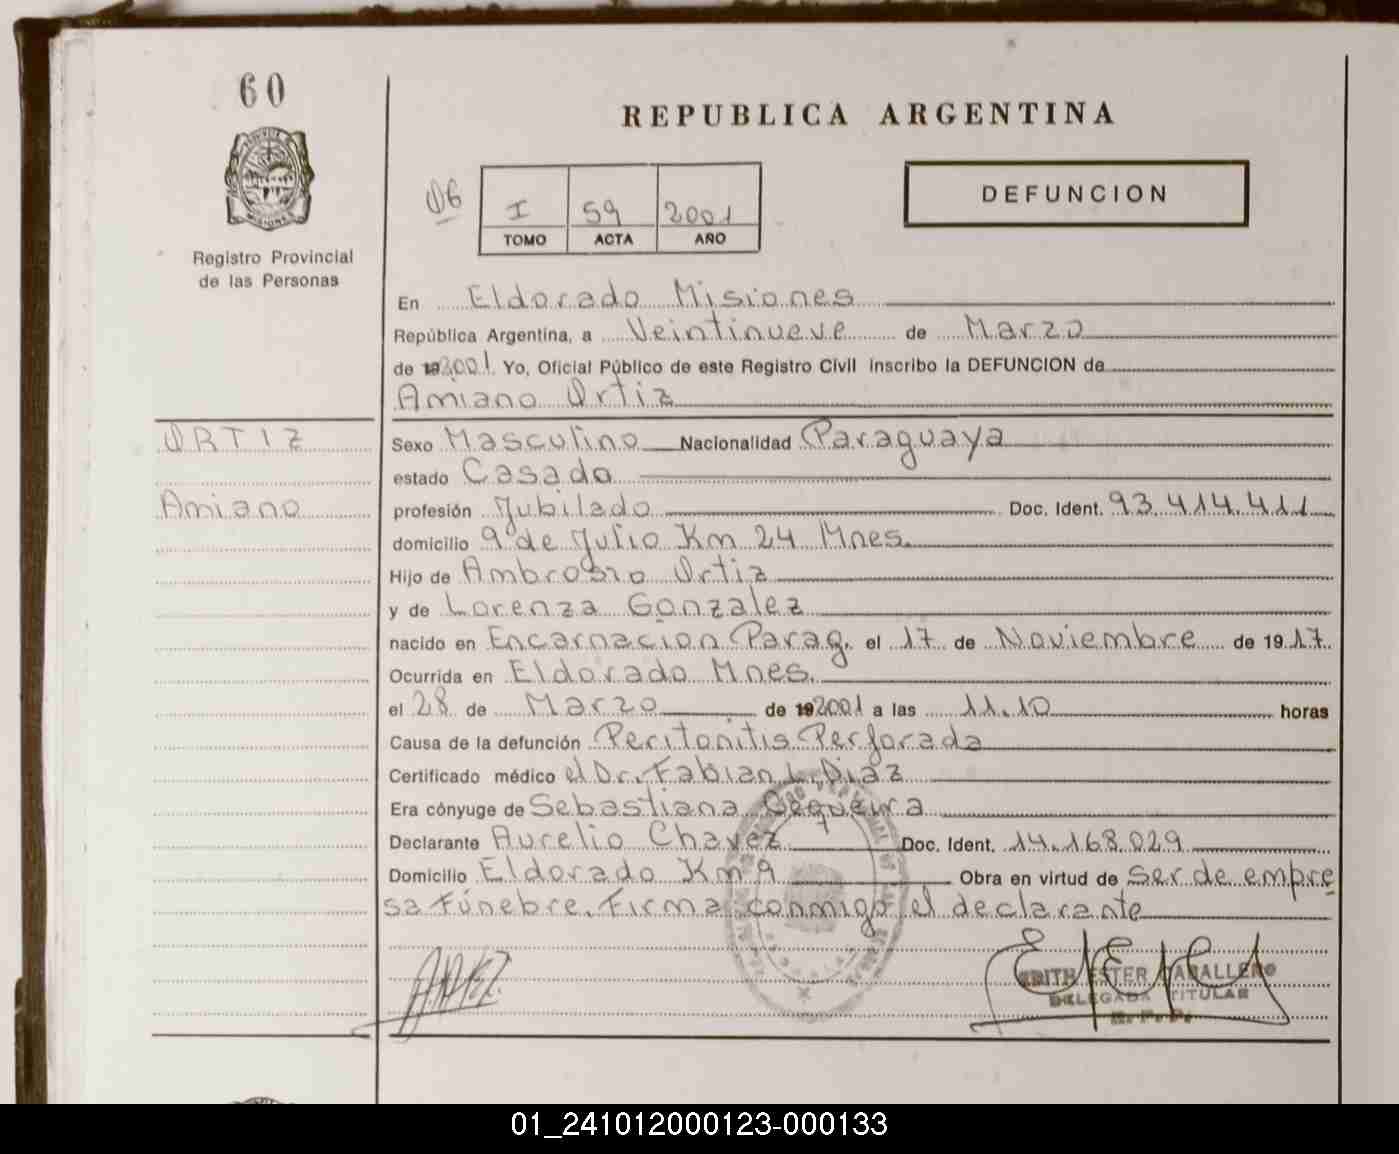 60
REPUBLICA ARGENTINA
MISIONES
Registro Provincial
de las Personas
06
I 59 2001
TOMO ACTA AÑO
DEFUNCION
En Eldorado Misiones
República Argentina, a Veintinueve de Marzo
de 192001. Yo, Oficial Público de este Registro Civil inscribo la DEFUNCION de
Amiano Ortiz
ORTIZ
Amiano
Sexo Masculino Nacionalidad Paraguaya
estado Casado
profesión Jubilado Doc. Ident. 93.414.411
domicilio 9 de Julio Km 24 Mnes.
Hijo de Ambrosio Ortiz
y de Lorenza Gonzalez
nacido en Encarnacion Parag. el 17 de Noviembre de 1917.
Ocurrida en Eldorado Mnes.
el 28 de Marzo de 192001 a las 11.10 horas
Causa de la defunción Peritonitis Perforada
Certificado médico el Dr. Fabian L. Diaz
Era cónyuge de Sebastiana Cequeira
Declarante Aurelio Chavez Doc. Ident. 14.168.029
Domicilio Eldorado Km 9 Obra en virtud de Ser de empre
sa Fúnebre. Firma conmigo el declarante
EDITH ESTER CABALLERO
DELEGADA TITULAR
R. P. P.
01_241012000123-000133